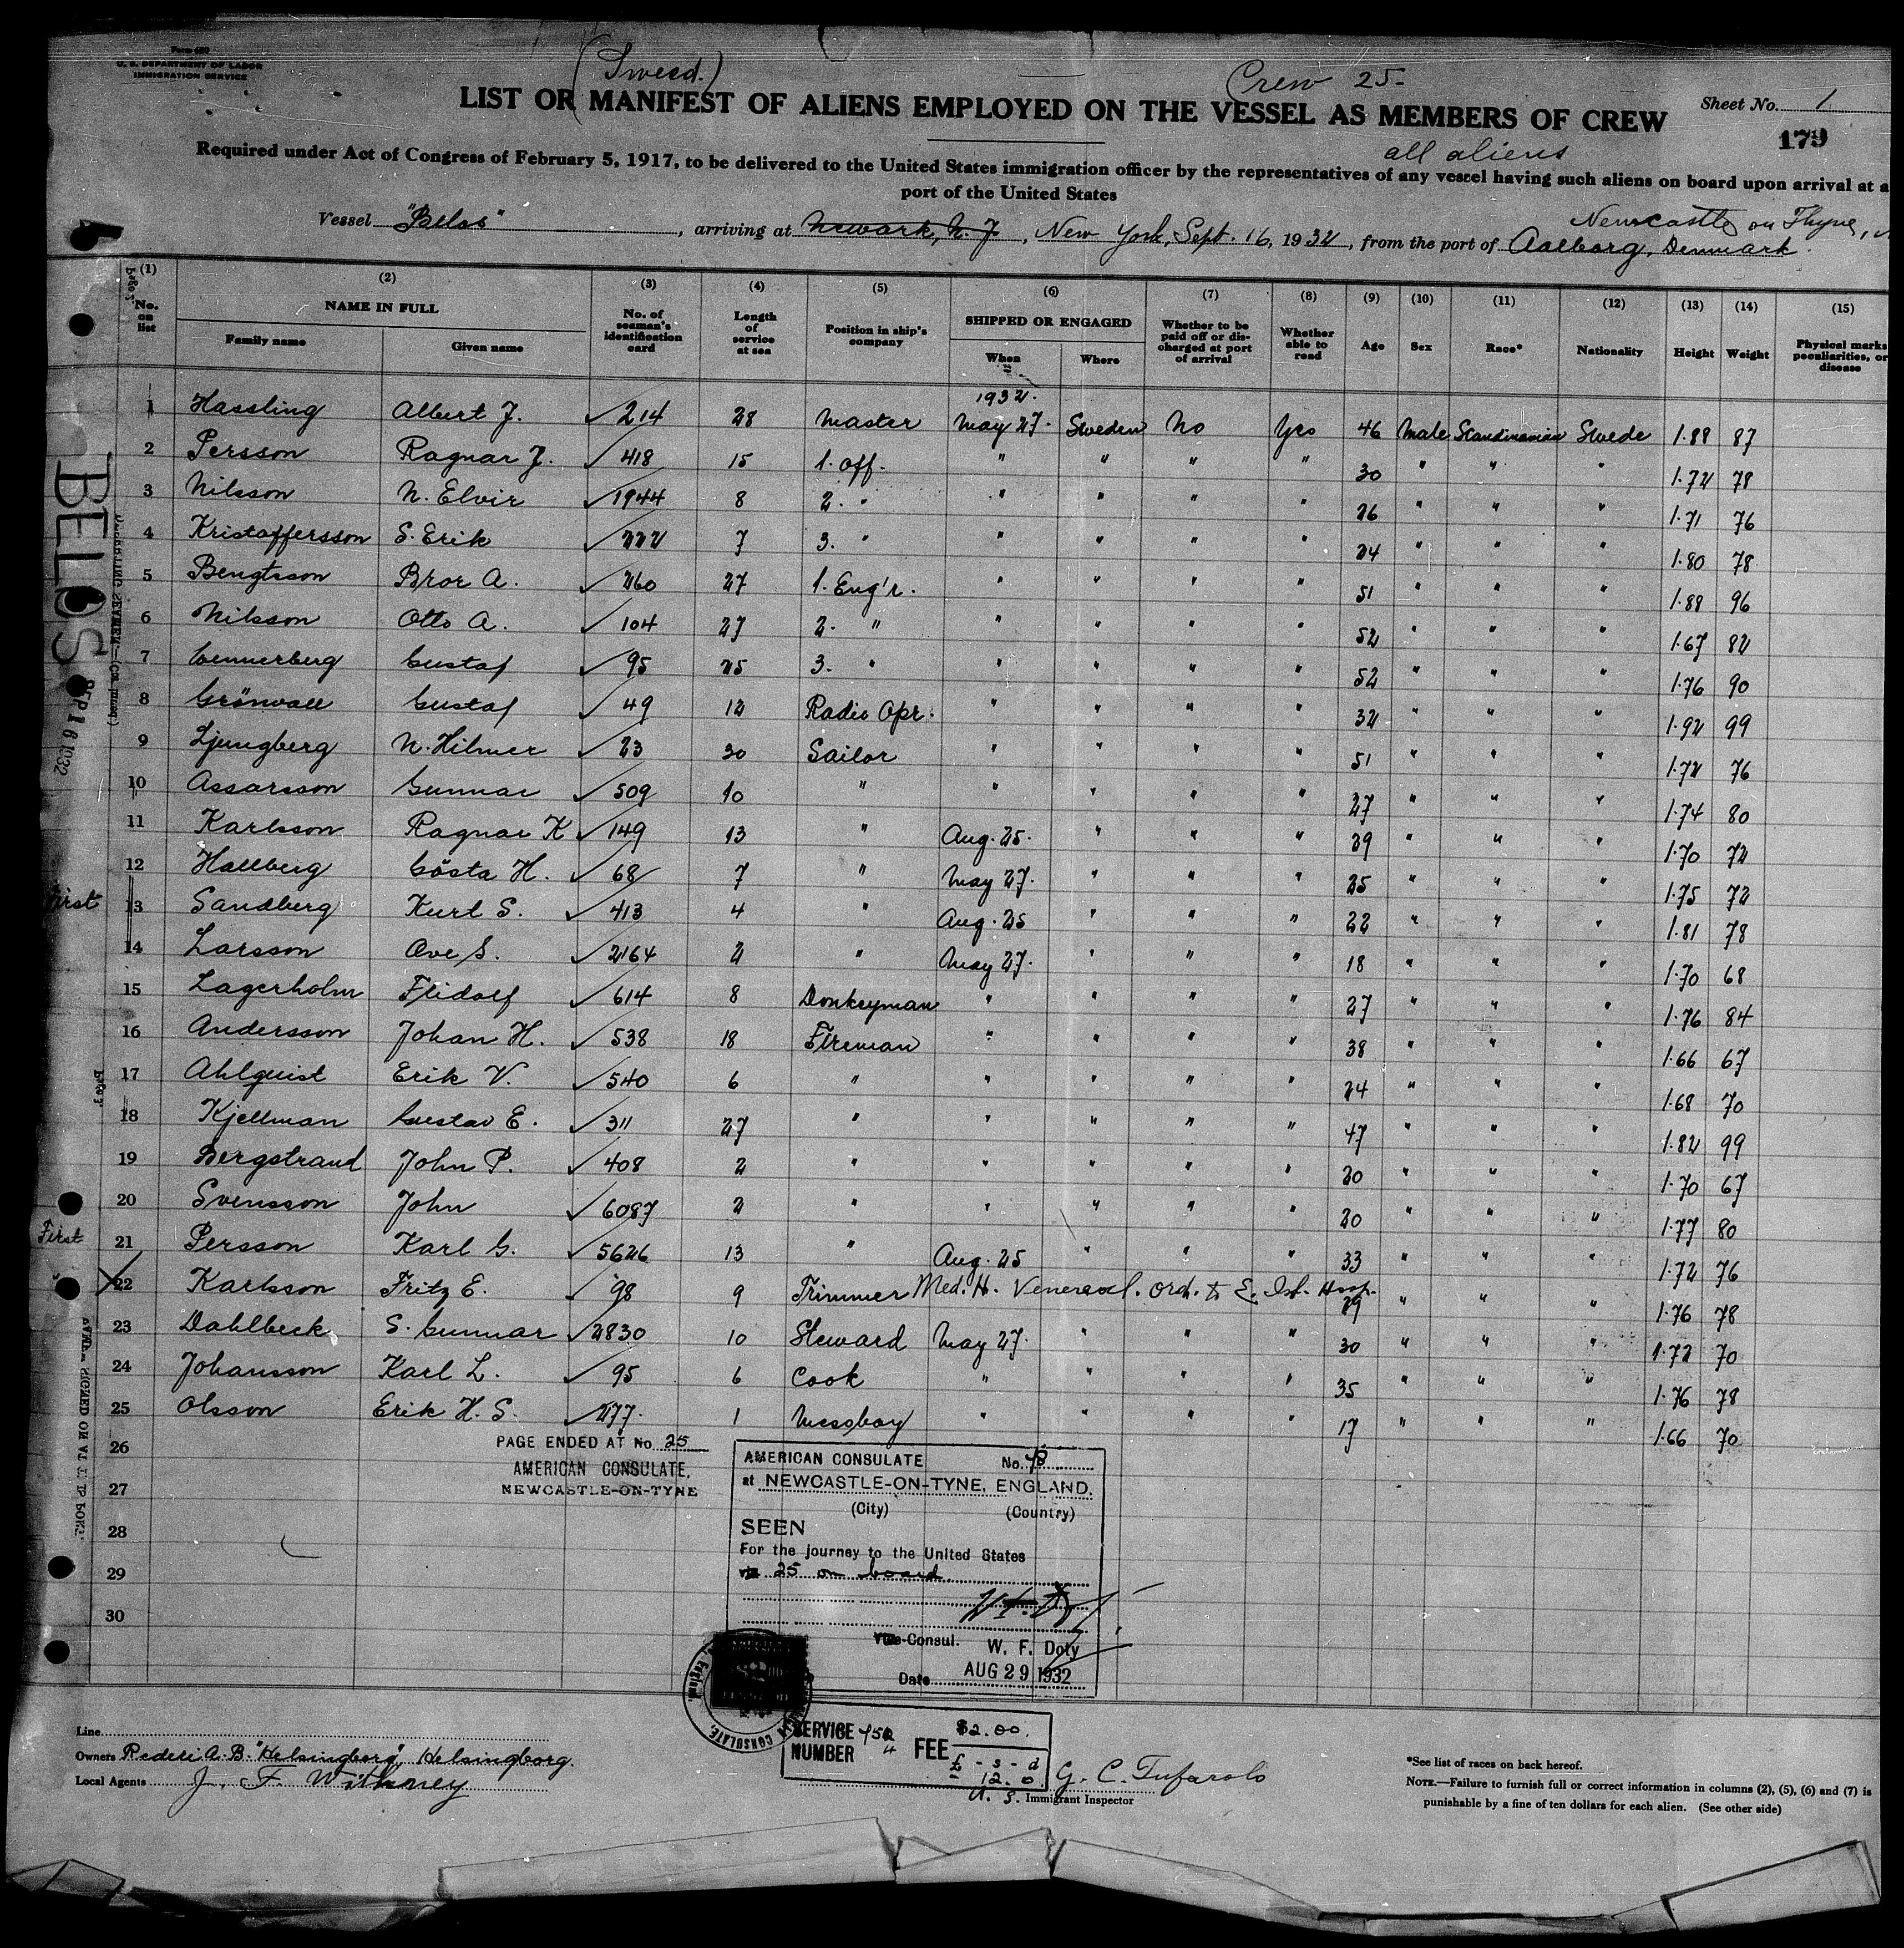 Form 680
U. S. DEPARTMENT OF LABOR
IMMIGRATION SERVICE
(Sweed.)
Crew 25-
LIST OR MANIFEST OF ALIENS EMPLOYED ON THE VESSEL AS MEMBERS OF CREW
Sheet No. 1
179
all aliens
Required under Act of Congress of February 5, 1917, to be delivered to the United States immigration officer by the representatives of any vessel having such aliens on board upon arrival at a
port of the United States
Newcastle on Thyne,
Vessel "Belos", arriving at Newark, N. J, New York, Sept. 16, 1932, from the port of Aalborg, Denmark.
(1) (2) (3) (4) (5) (6) (7) (8) (9) (10) (11) (12) (13) (14) (15)
No. on list NAME IN FULL Family name Given name No. of seaman's identification card Length of service at sea Position in ship's company SHIPPED OR ENGAGED When Where Whether to be paid off or discharged at port of arrival Whether able to read Age Sex Race* Nationality Height Weight Physical marks peculiarities, or disease
1932.
1 Hassling Albert J. ✓ 214 28 Master May 27. Sweden No Yes 46 Male Scandinavian Swede 1.88 87
2 Persson Ragnar J. ✓ 418 15 1. Off. " " " " 30 " " " 1.72 78
3 Nilsson N. Elvir ✓ 1944 8 2. " " " " " 26 " " " 1.71 76
4 Kristoffersson S. Erik ✓ 222 7 3. " " " " " 24 " " " 1.80 78
5 Bengtsson Bror A. ✓ 260 27 1. Eng'r. " " " " 51 " " " 1.88 96
6 Nilsson Otto A. ✓ 104 27 2. " " " " " 52 " " " 1.67 82
7 Wennerberg Gustaf ✓ 95 25 3. " " " " " 52 " " " 1.76 90
8 Grönvall Gustaf ✓ 49 12 Radio Opr. " " " " 32 " " " 1.92 99
9 Ljungberg N. Hilmer ✓ 23 30 Sailor " " " " 51 " " " 1.72 76
10 Assarsson Gunnar ✓ 509 10 " " " " " 27 " " " 1.74 80
11 Karlsson Ragnar K ✓ 149 13 " Aug. 25. " " " 29 " " " 1.70 72
12 Hallberg Gösta H. ✓ 68 7 " May 27. " " " 25 " " " 1.75 72
First 13 Sandberg Kurt S. ✓ 413 4 " Aug. 25 " " " 22 " " " 1.81 78
14 Larsson Ove S. ✓ 2164 2 " May 27. " " " 18 " " " 1.70 68
15 Lagerholm Fridolf ✓ 614 8 Donkeyman " " " " 27 " " " 1.76 84
16 Andersson Johan H. ✓ 538 18 Fireman " " " " 38 " " " 1.66 67
17 Ahlquist Erik V. ✓ 540 6 " " " " " 24 " " " 1.68 70
18 Kjellman Gustav E. ✓ 311 27 " " " " " 47 " " " 1.82 99
19 Bergstrand John P. ✓ 408 2 " " " " " 20 " " " 1.70 67
20 Svensson John ✓ 6087 2 " " " " " 20 " " " 1.77 80
First 21 Persson Karl G. ✓ 5626 13 " Aug. 25 " " " 33 " " " 1.72 76
22 Karlsson Fritz E. ✓ 98 9 Trimmer Med. H. Venereal. Ord. to E. Isl. Hosp. 29 " " " 1.76 78
23 Dahlbeck S. Gunnar ✓ 2830 10 Steward May 27. " " " 30 " " " 1.72 70
24 Johansson Karl L. ✓ 95 6 Cook " " " " 35 " " " 1.76 78
25 Olsson Erik H. S. ✓ 277. 1 Messboy " " " " 17 " " " 1.66 70
26
27
28
29
30
BELOS
SEP 16 1932
PAGE ENDED AT No. 25
AMERICAN CONSULATE,
NEWCASTLE-ON-TYNE
AMERICAN CONSULATE No.
at NEWCASTLE-ON-TYNE, ENGLAND.
(City) (Country)
SEEN
For the journey to the United States
25 on board
Vice-Consul. W. F. Doty
Date AUG 29 1932
CONSULATE,
England.
SERVICE NUMBER 752
FEE $2.00
£ - s - d
- 12. 0
Line
Owners Rederi A. B. "Helsingborg", Helsingborg.
Local Agents J. F. Whitney
G. C. Tufarolo
U. S. Immigrant Inspector
*See list of races on back hereof.
NOTE.—Failure to furnish full or correct information in columns (2), (5), (6) and (7) is
punishable by a fine of ten dollars for each alien. (See other side)